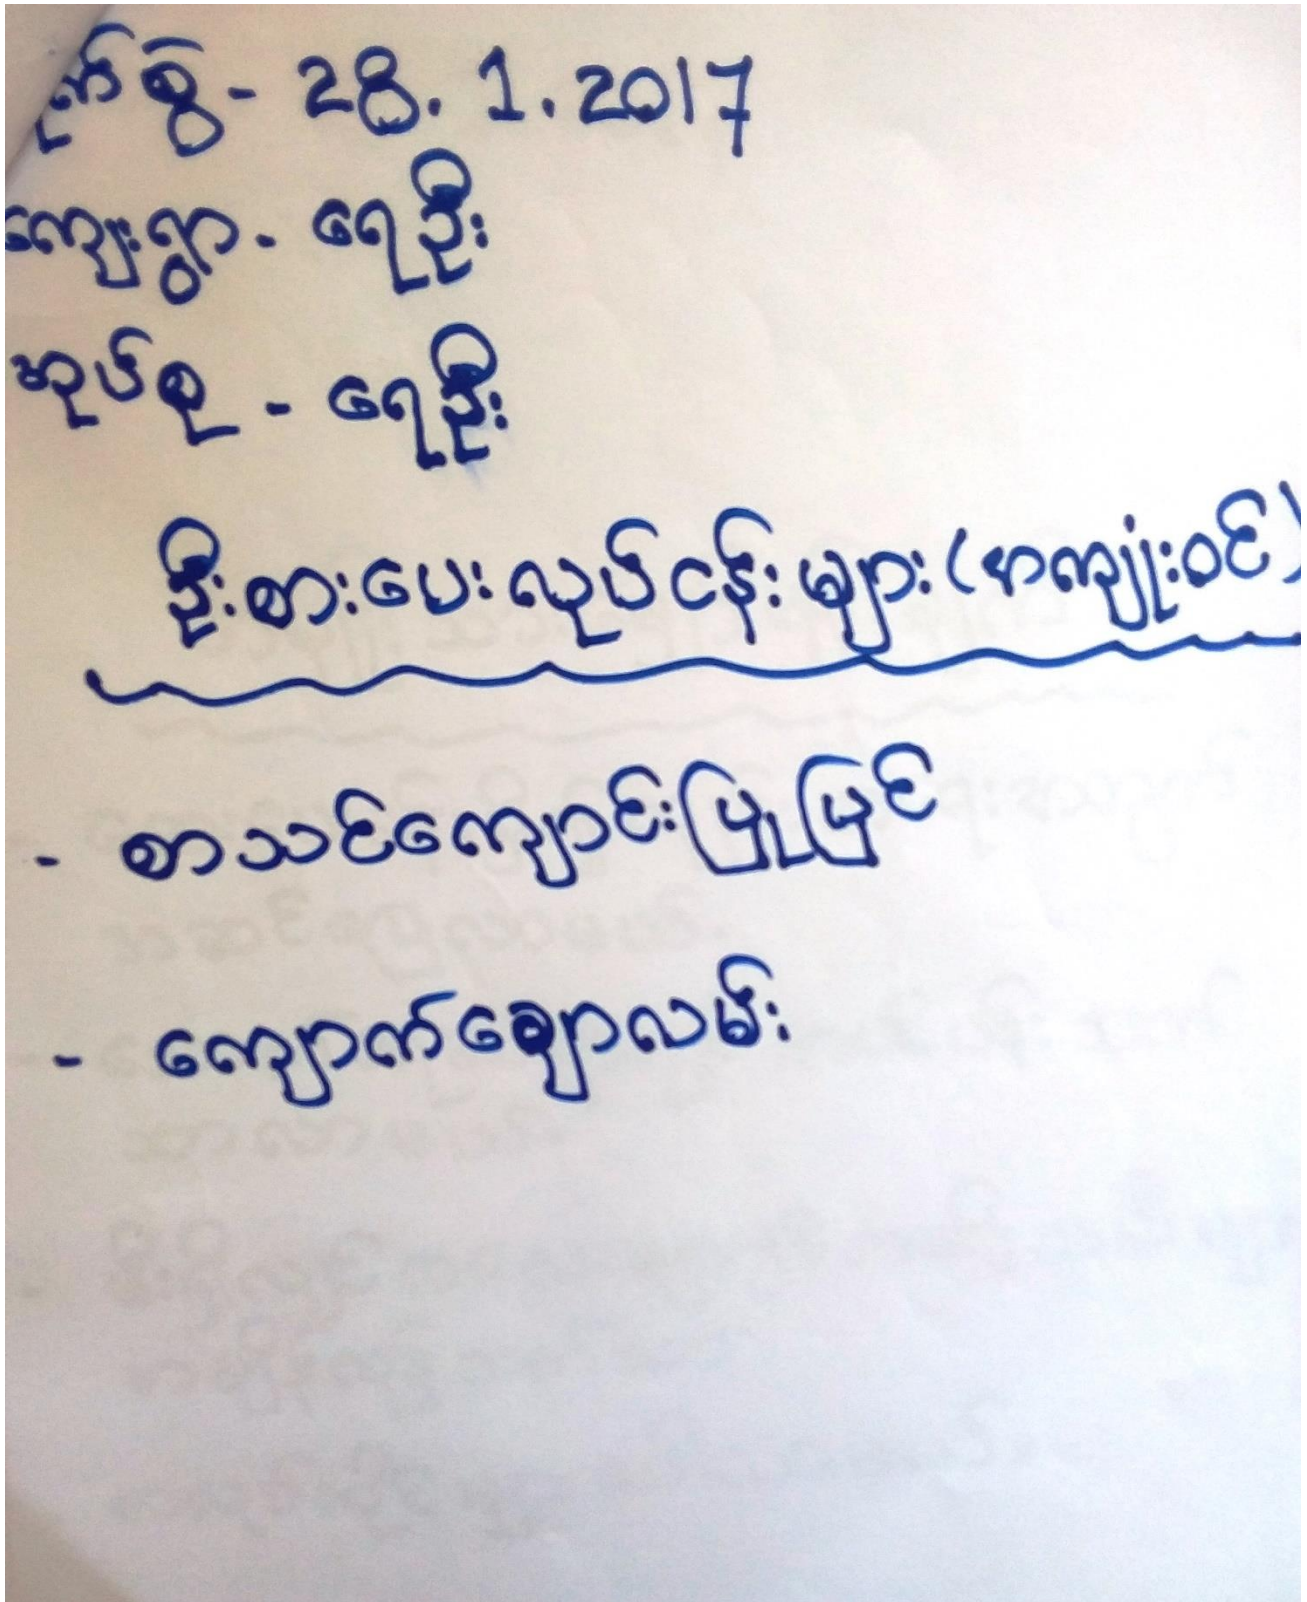 ရက်စွဲ - 28.1.2017
ကျေးရွာ - ရေဦး
အုပ်စု - ရေဦး
ဦးစားပေးလုပ်ငန်းများ (အကျုံးဝင်)
- စာသင်ကျောင်းပြုပြင်
- ကျောက်ချောလမ်း